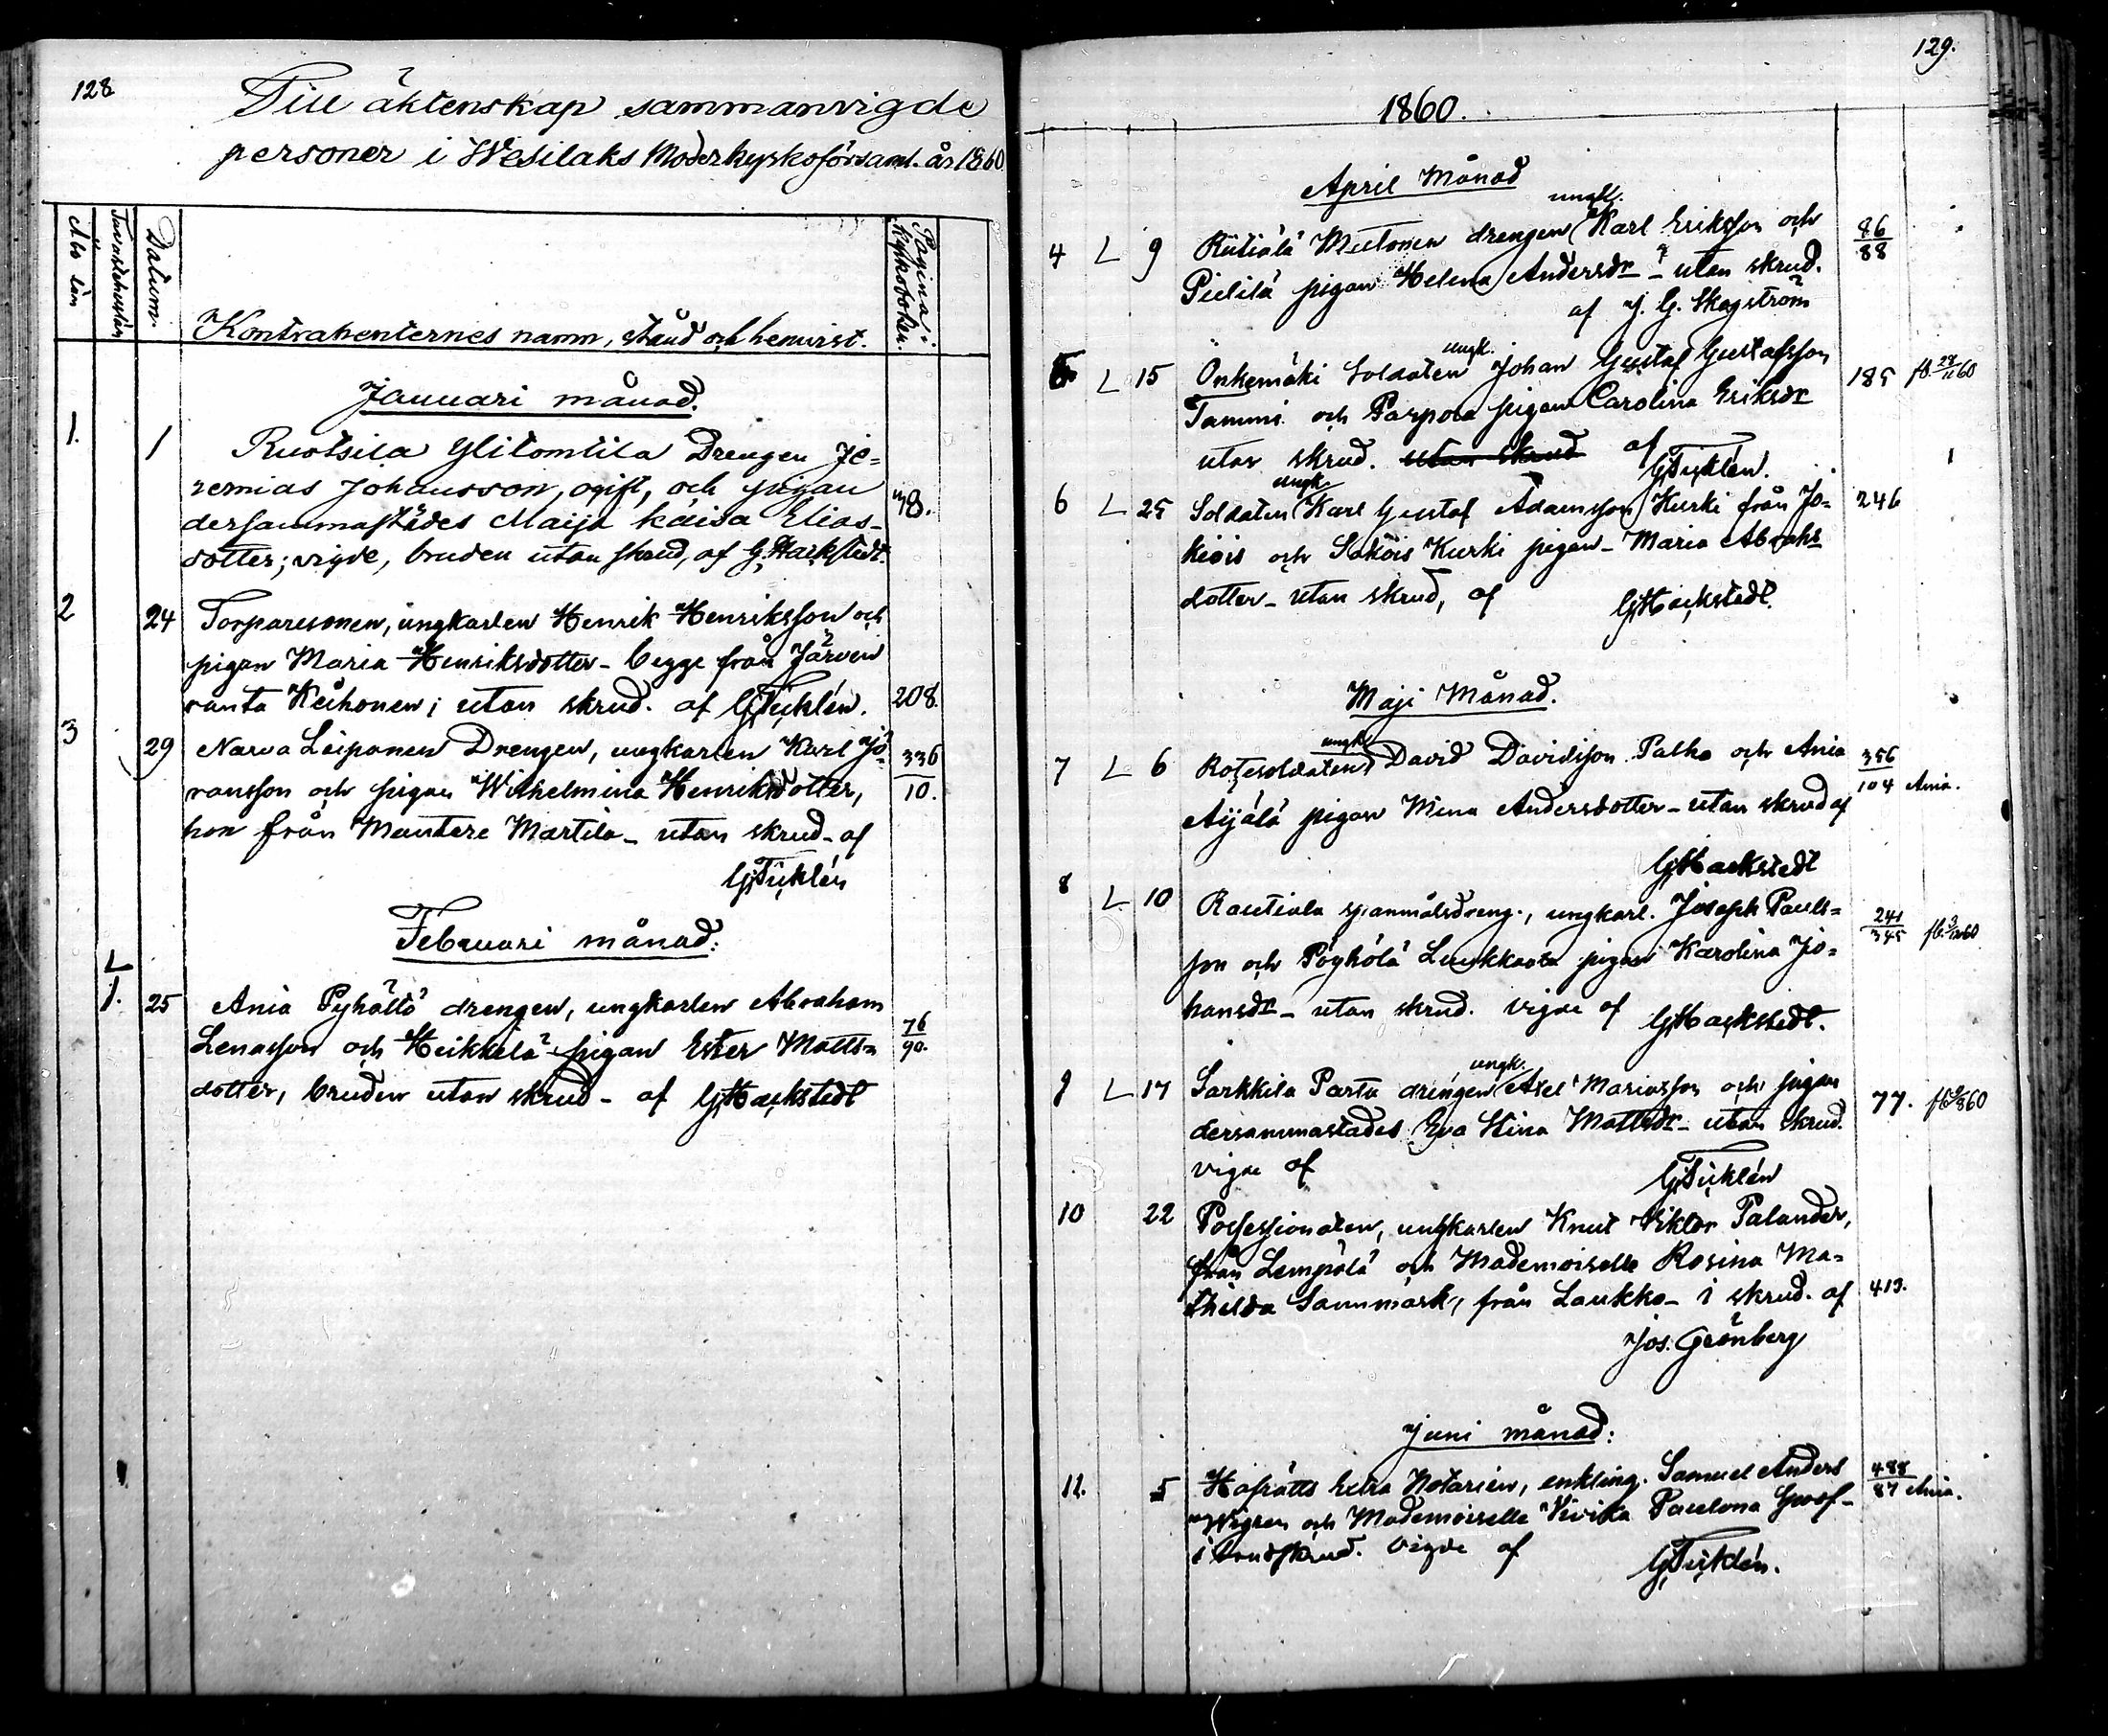 128
Till äktenskap sammanvigde
personer i Wesilaks Moderkyrkoförsaml. år 1860
Åbo län
Tavastehus län
Datum.
Kontrahenternes namn, stånd och hemvist.
Pagina i kyrkoboken.
Januari månad.
1. 1 Ruotsila Ylitomtila Drengen Je=
remias Johansson, ogift, och pigan
dersammastädes Maija Kaisa Elias-
dotter; vigde, bruden utan skrud, af G. Hackstedt.
2 24 Torparesonen, ungkarlen Henrik Henriksson och
pigan Maria Henriksdotter - begge från Järven
ranta Keihonen; utan skrud. af G. Ticklén. 208.
3 29 Narva Leiponen Drengen, ungkarlen Karl Jo= 336
ransson och pigan Wilhelmina Henriksdotter, 10.
hon från Mantere Martila - utan skrud - af
G. Ticklén
Februari månad:
L
1. 25 Ania Pyhältö drengen, ungkarlen Abraham
Lenasson och Heikkelä pigan Ester Matts= 76/90.
dotter, bruden utan skrud - af G. Hackstedt
129.
1860.
April Månad
ungk.
4 L 9 Rutiälä Mutonen drengen Karl Eriksson och 86/88
Pielilä pigan Helena Andersdr - utan skrud.
af J. G. Skogström
ungk.
5 L 15 Onkemäki Soldaten Johan Gustaf Gustafsson 185 fl. 28/11 60
Tammi och Parpola pigan Carolina Eriksdr
utan skrud. utan skrud af
G. Ticklén.
ungk.
6 L 25 Soldaten Karl Gustaf Adamsson Kurki från Jo- 246
kiois och Sakois Kurki pigan - Maria Abrahs
dotter - utan skrud, af
G. Hackstedt.
Maji Månad.
ungk
7 L 6 Rotesoldaten David Davidsson Palho och Ania 356
Äijälä pigan Mina Andersdotter - utan skrud af 104 Ania.
G. Hackstedt
8 L 10 Rautiala spanmålsdreng., ungkarl. Joseph Pauls= 241/345
son och Pöyhölä Luukkaala pigan Karolina Jo=
hansdr - utan skrud. vigde af
G. Hackstedt.
ungk.
9 L 17 Sarkkila Parta drengen Axel Mariasson och pigan 77.
dersammastädes Eva Stina Mattsdr - utan skrud.
vigde af
G. Ticklén
10 22 Possessionaten, ungkarlen Knut Viktor Palander,
från Lempälä och Mademoiselle Rosina Ma=
thilda Sanmark, från Laukko - i skrud. af 413.
Jos. Grönberg
Juni månad:
11. 5 Hofrätts Extra Notarien, enkling. Samuel Anders 488
Wegren och Mademoiselle Vivika Paulona 87 Ania.
i brudskrud. vigde af
G. Ticklén.